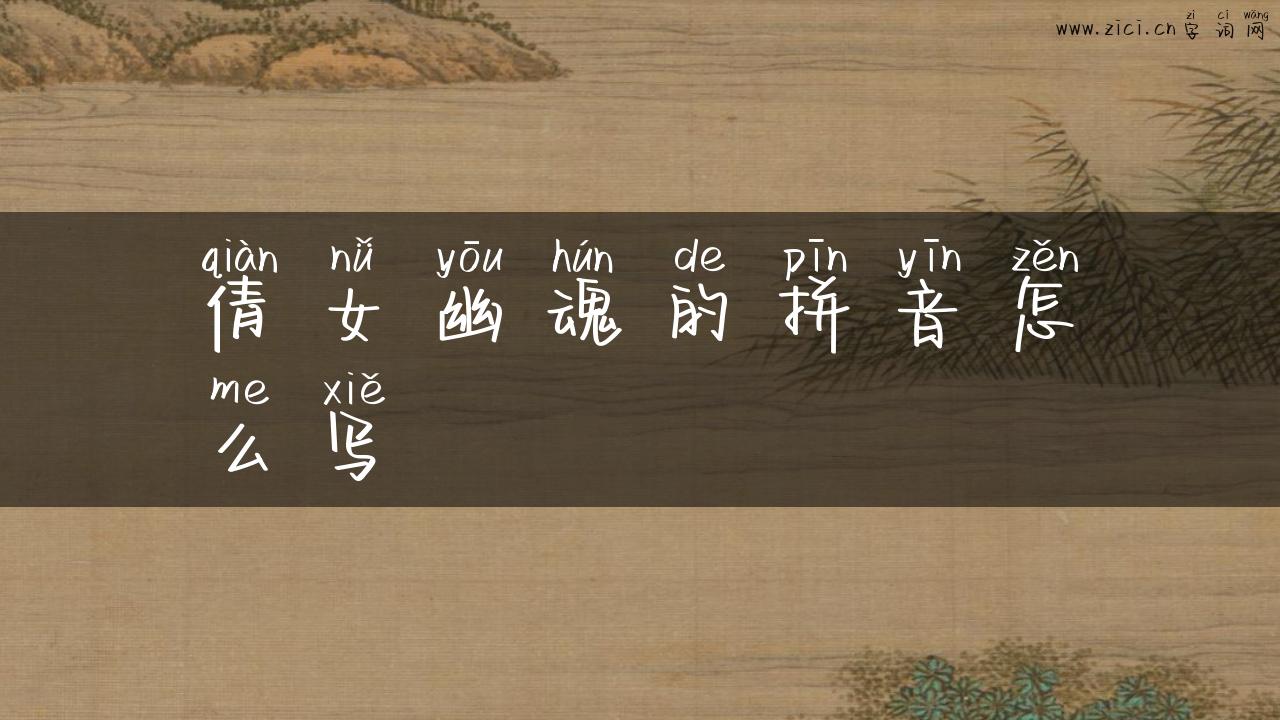 zì cí wǎng
www.zici.cn字词网
qiàn nǚ yōu hún de pīn yīn zěn
倩女幽魂的拼音怎
me xiě
么写